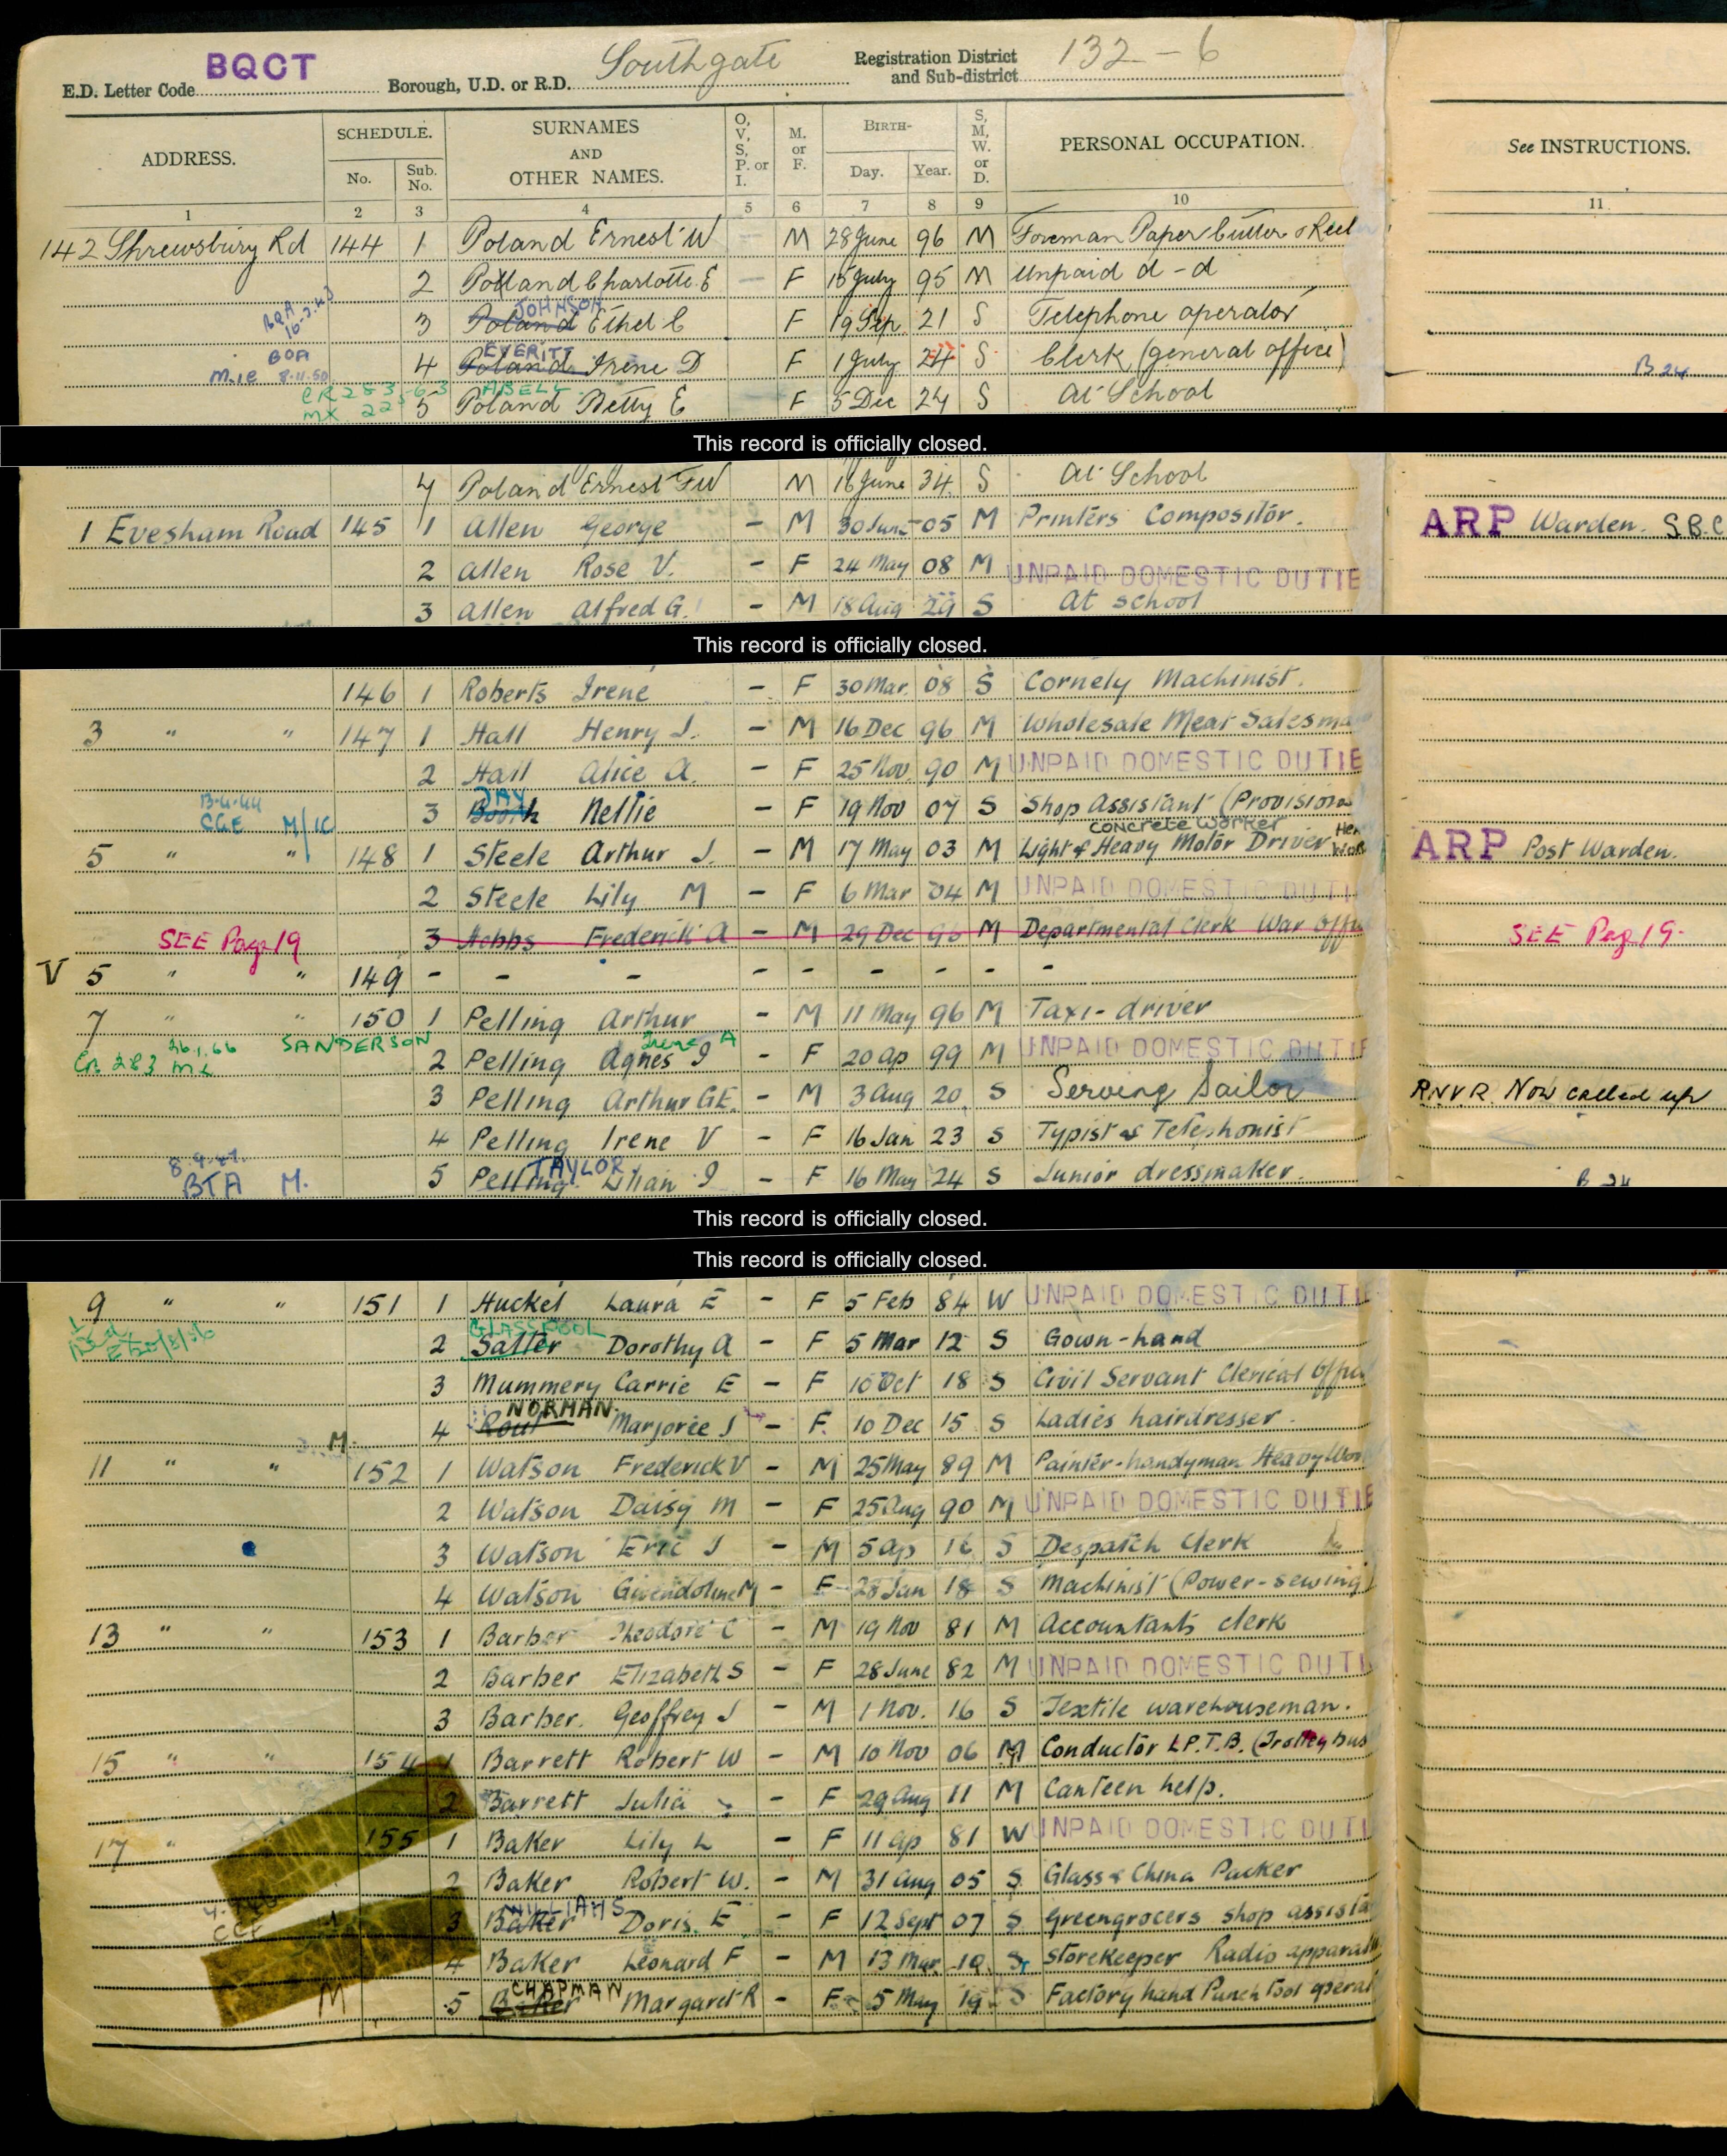 E.D. Letter Code BQCT Borough, U.D. or R.D. Southgate Registration District and Sub-district 132 - 6
ADDRESS. SCHEDULE. No. Sub. No. SURNAMES AND OTHER NAMES. O, V, S, P. or I. M. or F. BIRTH- Day. Year. S, M, W. or D. PERSONAL OCCUPATION. See INSTRUCTIONS.
1 2 3 4 5 6 7 8 9 10 11
142 Shrewsbury Rd 144 1 Poland Ernest W — M 28 June 96 M Foreman Paper Cutter & Reel
2 Poland Charlotte E — F 15 July 95 M Unpaid d - d
JOHNSON
3 Poland Ethel C F 19 Sep 21 S Telephone operator
EVERITT
BQA 8.11.50
M.ie 4 Poland Irene D F 1 July 24 S Clerk (general office) B 24
CR 283 ABELL
5 Poland Betty E F 5 Dec 24 S At School
This record is officially closed.
7 Poland Ernest F W M 16 June 34 S At School
1 Evesham Road 145 1 Allen George - M 30 June 05 M Printers Compositor. ARP Warden. S.B.C
2 Allen Rose V. - F 24 May 08 M UNPAID DOMESTIC DUTIE
3 Allen Alfred G. - M 18 Aug 29 S At school
This record is officially closed.
146 1 Roberts Irene - F 30 Mar. 08 S Cornely Machinist.
3 " " 147 1 Hall Henry J. - M 16 Dec 96 M Wholesale Meat Salesma
2 Hall Alice A. - F 25 Nov. 90 M UNPAID DOMESTIC DUTIE
13.4.44 DAY
CGE M/IC 3 Booth Nellie - F 19 Nov 07 S Shop Assistant (Provision
CONCRETE WORKER
5 " " 148 1 Steele Arthur J. - M 17 May 03 M Light & Heavy Motor Driver ARP Post Warden.
2 Steele Lily M - F 6 Mar 04 M UNPAID DOMESTIC DUTI
SEE Page 19 3 Hobbs Frederick A - M 29 Dec 96 M Departmental Clerk War Offi SEE Page 19.
V 5 " " 149 - - - - - - - - -
7 " " 150 1 Pelling Arthur - M 11 May 96 M Taxi-driver
26.1.66 SANDERSON Irene A
CR 283 2 Pelling Agnes I - F 20 Ap 99 M UNPAID DOMESTIC DUTIE
3 Pelling Arthur G E. - M 3 Aug 20 S Serving Sailor R.N.V.R. Now called up
4 Pelling Irene V - F 16 Jan 23 S Typist & Telephonist
TAYLOR
BTA M. 5 Pelling Lilian I - F 16 May 24 S Junior dressmaker. B 24
This record is officially closed.
This record is officially closed.
9 " " 151 1 Huckel Laura E - F 5 Feb 84 W UNPAID DOMESTIC DUTIE
GLASSPOOL
2 Salter Dorothy A - F 5 Mar 12 S Gown-hand
3 Mummery Carrie E - F 10 Oct 18 S Civil Servant Clerical Offic
NORMAN
M. 4 Rout Marjorie J - F. 10 Dec 15 S Ladies hairdresser.
11 " " 152 1 Watson Frederick V - M 25 May 89 M Painter-handyman Heavy Wor
2 Watson Daisy M - F 25 Aug 90 M UNPAID DOMESTIC DUTIE
3 Watson Eric J - M 5 Ap 16 S Despatch Clerk
4 Watson Gwendoline M - F 28 Jan 18 S Machinist (Power-sewing)
13 " " 153 1 Barber Theodore C - M 19 Nov 81 M Accountants clerk
2 Barber Elizabeth S - F 28 June 82 M UNPAID DOMESTIC DUTI
3 Barber. Geoffrey J - M 1 Nov. 16 S Textile warehouseman.
15 " " 154 1 Barrett Robert W - M 10 Nov 06 M Conductor L.P.T.B. (Trolley bus
2 Barrett Julia - F 29 Aug 11 M Canteen help.
17 " 155 1 Baker Lily L - F 11 Ap 81 W UNPAID DOMESTIC DUTI
2 Baker Robert W. - M 31 Aug 05 S Glass & China Packer
WILLIAMS
3 Baker Doris. E - F 12 Sept 07 S Greengrocers shop assista
4 Baker Leonard F - M 13 Mar 10 S Storekeeper Radio apparat
CHAPMAN
M 5 Baker Margaret R - F 5 May 19 S Factory hand Punch Tool operat